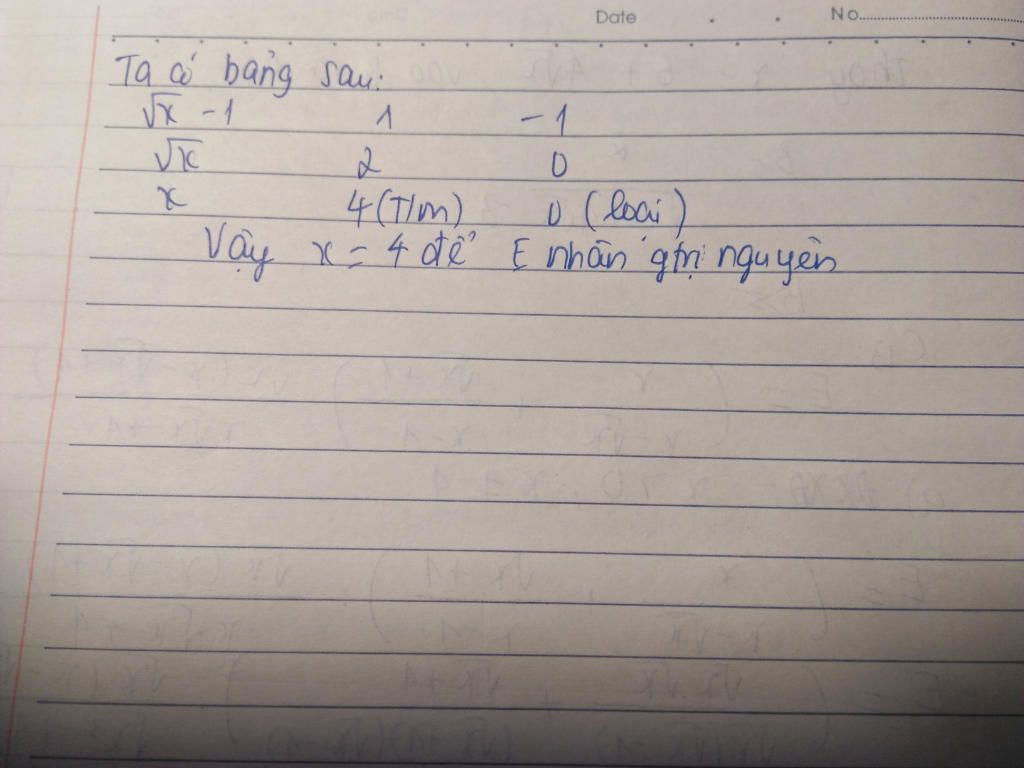 Date No.
Ta có bảng sau:
√x - 1 1 -1
√x 2 0
x 4 (T/m) 0 (loại)
Vậy x = 4 để E nhận gtrị nguyên